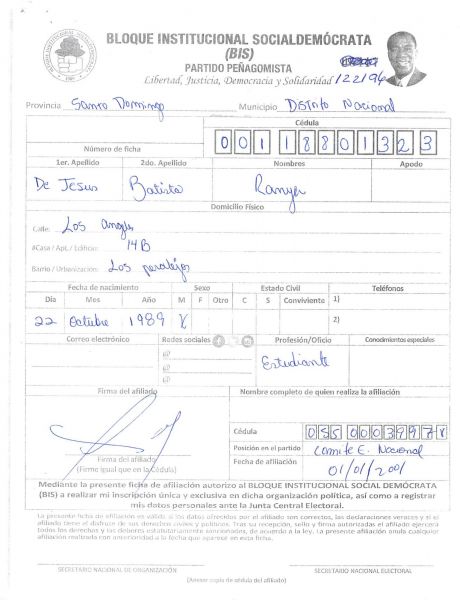 BLOQUE INSTITUCIONAL SOCIALDEMÓCRATA
(BIS)
PARTIDO PEÑAGOMISTA
Libertad, Justicia, Democracia y Solidaridad 122194
Provincia Santo Domingo Municipio Distrito Nacional
Cédula
Número de ficha 00118801323
1er. Apellido 2do. Apellido Nombres Apodo
De Jesus Batista Ranyer
Domicilio Físico
Calle: Los
#Casa / Apt. / Edificio: 14B
Barrio / Urbanización: Los peralejos
Fecha de nacimiento Sexo Estado Civil Teléfonos
Día Mes Año M F Otro C S Conviviente 1)
22 Octubre 1989 2)
Correo electrónico Redes sociales Profesión/Oficio Conocimientos especiales
@
@
@
Estudiante
Firma del afiliado Nombre completo de quien realiza la afiliación
Cédula
Posición en el partido Comite E. Nacional
Fecha de afiliación 01/01/2001
Firma del afiliado
(Firme igual que en la Cédula)
Mediante la presente ficha de afiliación autorizo al BLOQUE INSTITUCIONAL SOCIAL DEMÓCRATA
(BIS) a realizar mi inscripción única y exclusiva en dicha organización política, así como a registrar
mis datos personales ante la Junta Central Electoral.
La presente ficha de afiliación es válida si los datos ofrecidos por el afiliado son correctos, las declaraciones veraces y si el
afiliado tiene el disfrute de sus derechos civiles y políticos. Tras su recepción, sello y firma autorizadas el afiliado ejercerá
todos los derechos y los deberes estatutariamente sancionados, de acuerdo a la ley. La presente afiliación anula cualquier
afiliación realizada con anterioridad a la fecha que aparece en esta ficha.
SECRETARIO NACIONAL DE ORGANIZACIÓN SECRETARIO NACIONAL ELECTORAL
(Anexar copia de cédula del afiliado)